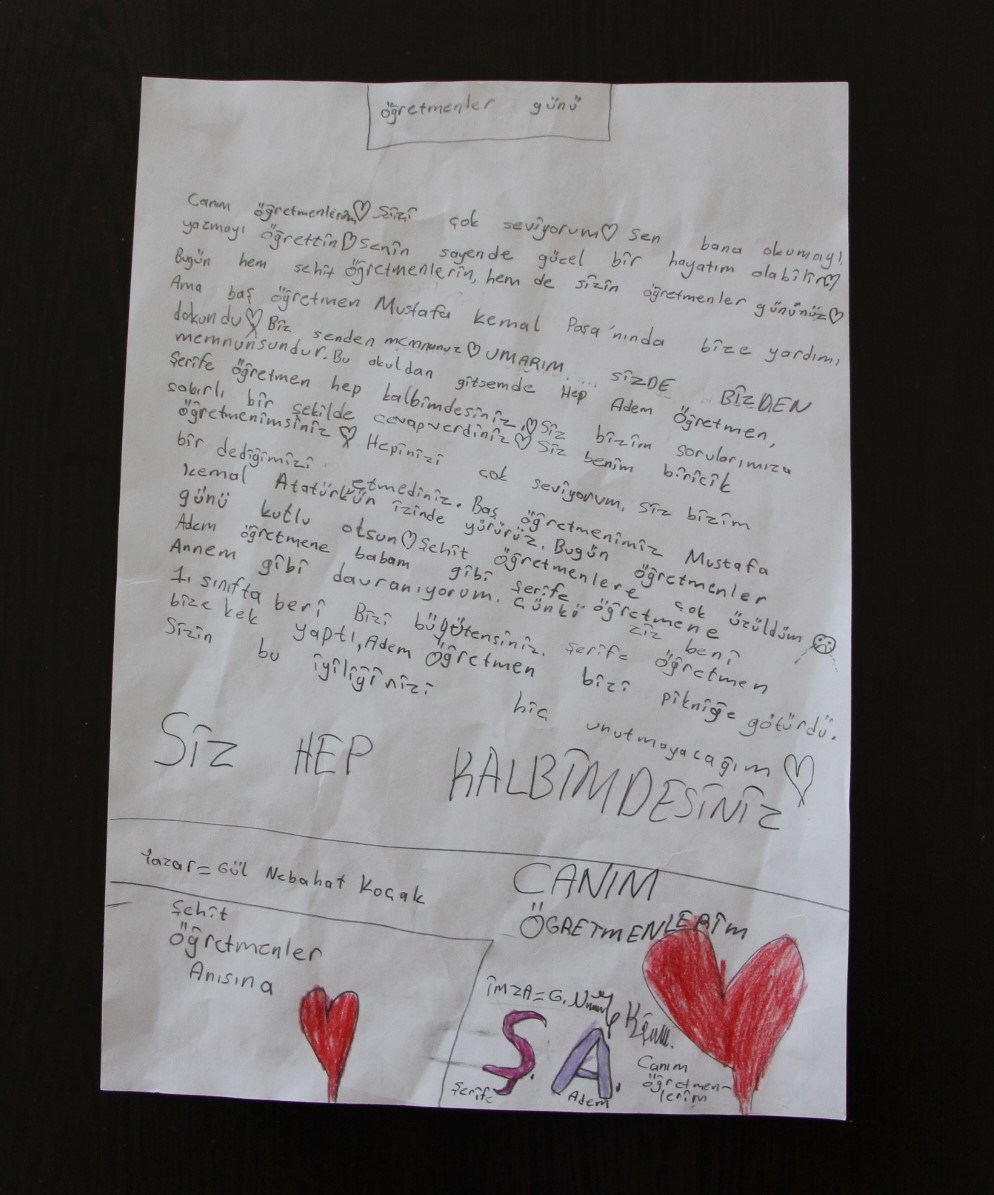 öğretmenler günü
Canım öğretmenlerim♡ Sizi çok seviyorum♡ Sen bana okumayı
yazmayı öğrettin♡ Senin sayende güzel bir hayatım olabilir♡
Bugün hem şehit öğretmenlerin, hem de sizin öğretmenler gününüz♡
Ama baş öğretmen Mustafa kemal Paşa'nında bize yardımı
dokundu♡ Biz senden memnunuz♡ UMARIM .... SİZDE BİZDEN
memnunsundur. Bu okuldan gitsemde Hep Adem Öğretmen,
Şerife öğretmen hep kalbimdesiniz.♡ Siz bizim sorularımıza
sabırlı bir şekilde cevap verdiniz♡ Siz benim biricik
öğretmenimsiniz♡ Hepinizi çok seviyorum. Siz bizim
bir dediğimizi etmediniz. Baş öğretmenimiz Mustafa
kemal Atatürkün izinde yürürüz. Bugün öğretmenler
günü kutlu olsun♡ Şehit öğretmenlere çok üzüldüm ☹
Adem öğretmene babam gibi Şerife öğretmene
Annem gibi davranıyorum. Çünkü ziz beni
1. sınıfta beri Bizi büyütensiniz. Şerife öğretmen
bize kek yaptı, Adem Öğretmen bizi pikniğe götürdü.
Sizin bu iyiliğinizi hiç unutmayacağım♡
SİZ HEP KALBİMDESİNİZ
Yazar= Gül Nebahat Koçak
Şehit
Öğretmenler
Anısına
CANIM
ÖĞRETMENLERİM
İMZA= G.
Ş. A.
Şerife Adem
Canım
öğretmen-
lerim